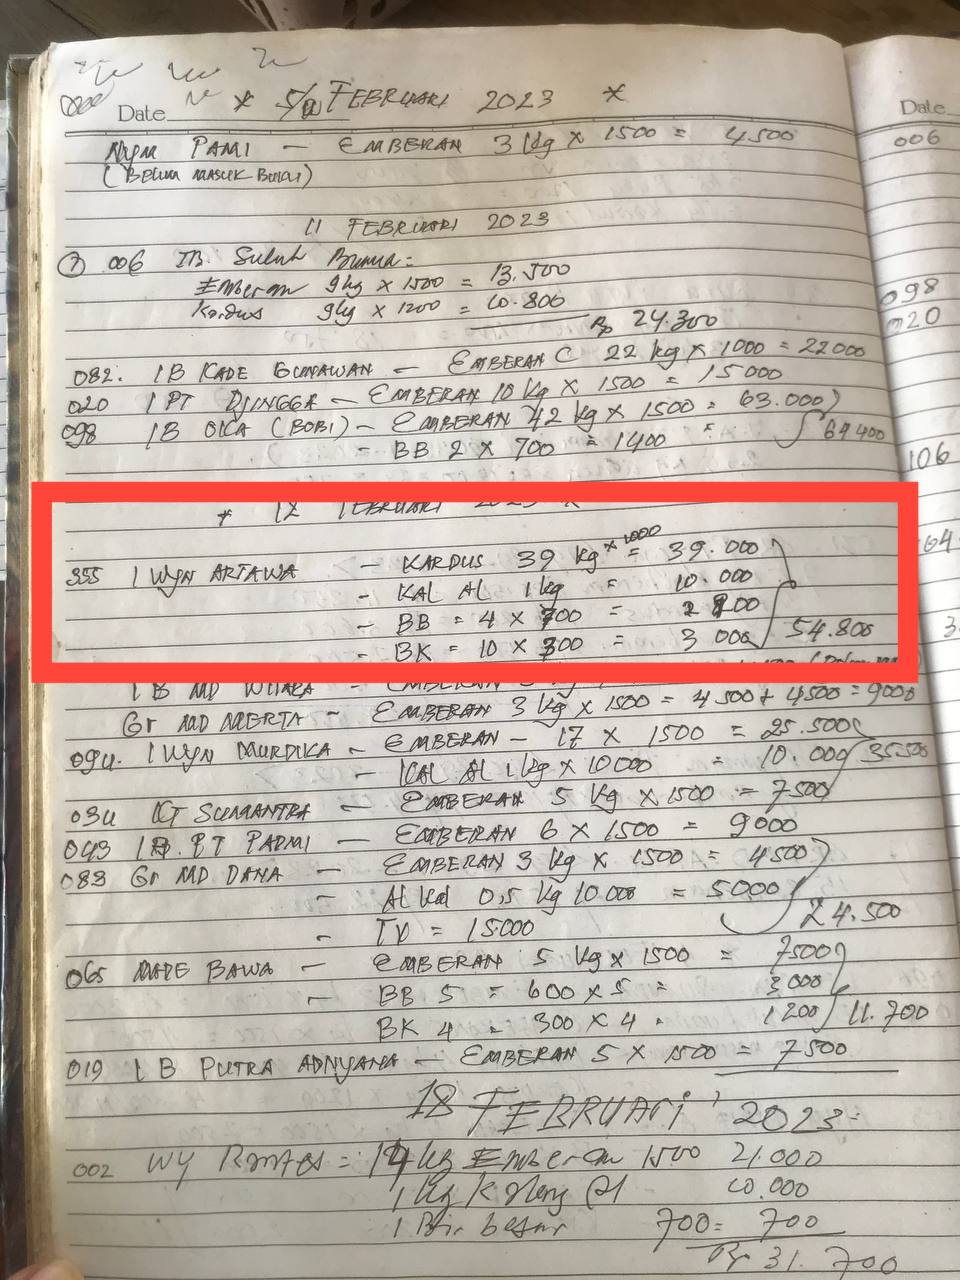 Date * 5/ FEBRUARI 2023 *
Nym PAMI - EMBERAN 3 kg x 1500 = 4500
(BELUM MASUK BUKU)
11 FEBRUARI 2023
7 006 IB. Suluh Buana =
Emberan 9kg x 1500 = 13.500
Kardus 9kg x 1200 = 10.800
Rp 24.300
082. I B KADE GUNAWAN - EMBERAN C 22 kg x 1000 = 22000
020 I PT DJINGGA - EMBERAN 10 kg x 1500 = 15000
098 IB OKA (BOBI) - EMBERAN 42 kg x 1500 = 63.000
- BB 2 x 700 = 1400 = 64400
* 12 FEBRUARI 2023 x
355 I WYN ARTAWA - KARDUS 39 kg x 1000 = 39.000
- KAL AL 1 kg = 10.000
- BB = 4 x 700 = 2800
- BK = 10 x 300 = 3 000 54.800
I B MD WITARA - EMBERAN 3
Gr MD MERTA - EMBERAN 3 kg x 1500 = 4500 + 4500 = 9000
094. I WYN MURDIKA - EMBERAN - 17 x 1500 = 25.500
- KAL AL 1 kg x 10000 = 10.000 35.500
034 KT SUMANTRA - EMBERAN 5 kg x 1500 = 7500
043 IB. PT PADMI - EMBERAN 6 x 1500 = 9000
083 Gr MD DANA - EMBERAN 3 kg x 1500 = 4500
- Al Kal 0,5 kg 10.000 = 5000
- TV = 15000 24.500
065 MADE BAWA - EMBERAN 5 kg x 1500 = 7500
- BB 5 = 600 x 5 = 3000
BK 4 = 300 x 4 = 1200 11.700
019 I B PUTRA ADNYANA - EMBERAN 5 x 1500 = 7500
18 FEBRUARI 2023
002 WY Rantes = 14 kg Emberan 1500 21.000
1 kg Kaleng Al 10.000
1 Bir besar 700 = 700
Rp 31.700
Date
006
098
020
106